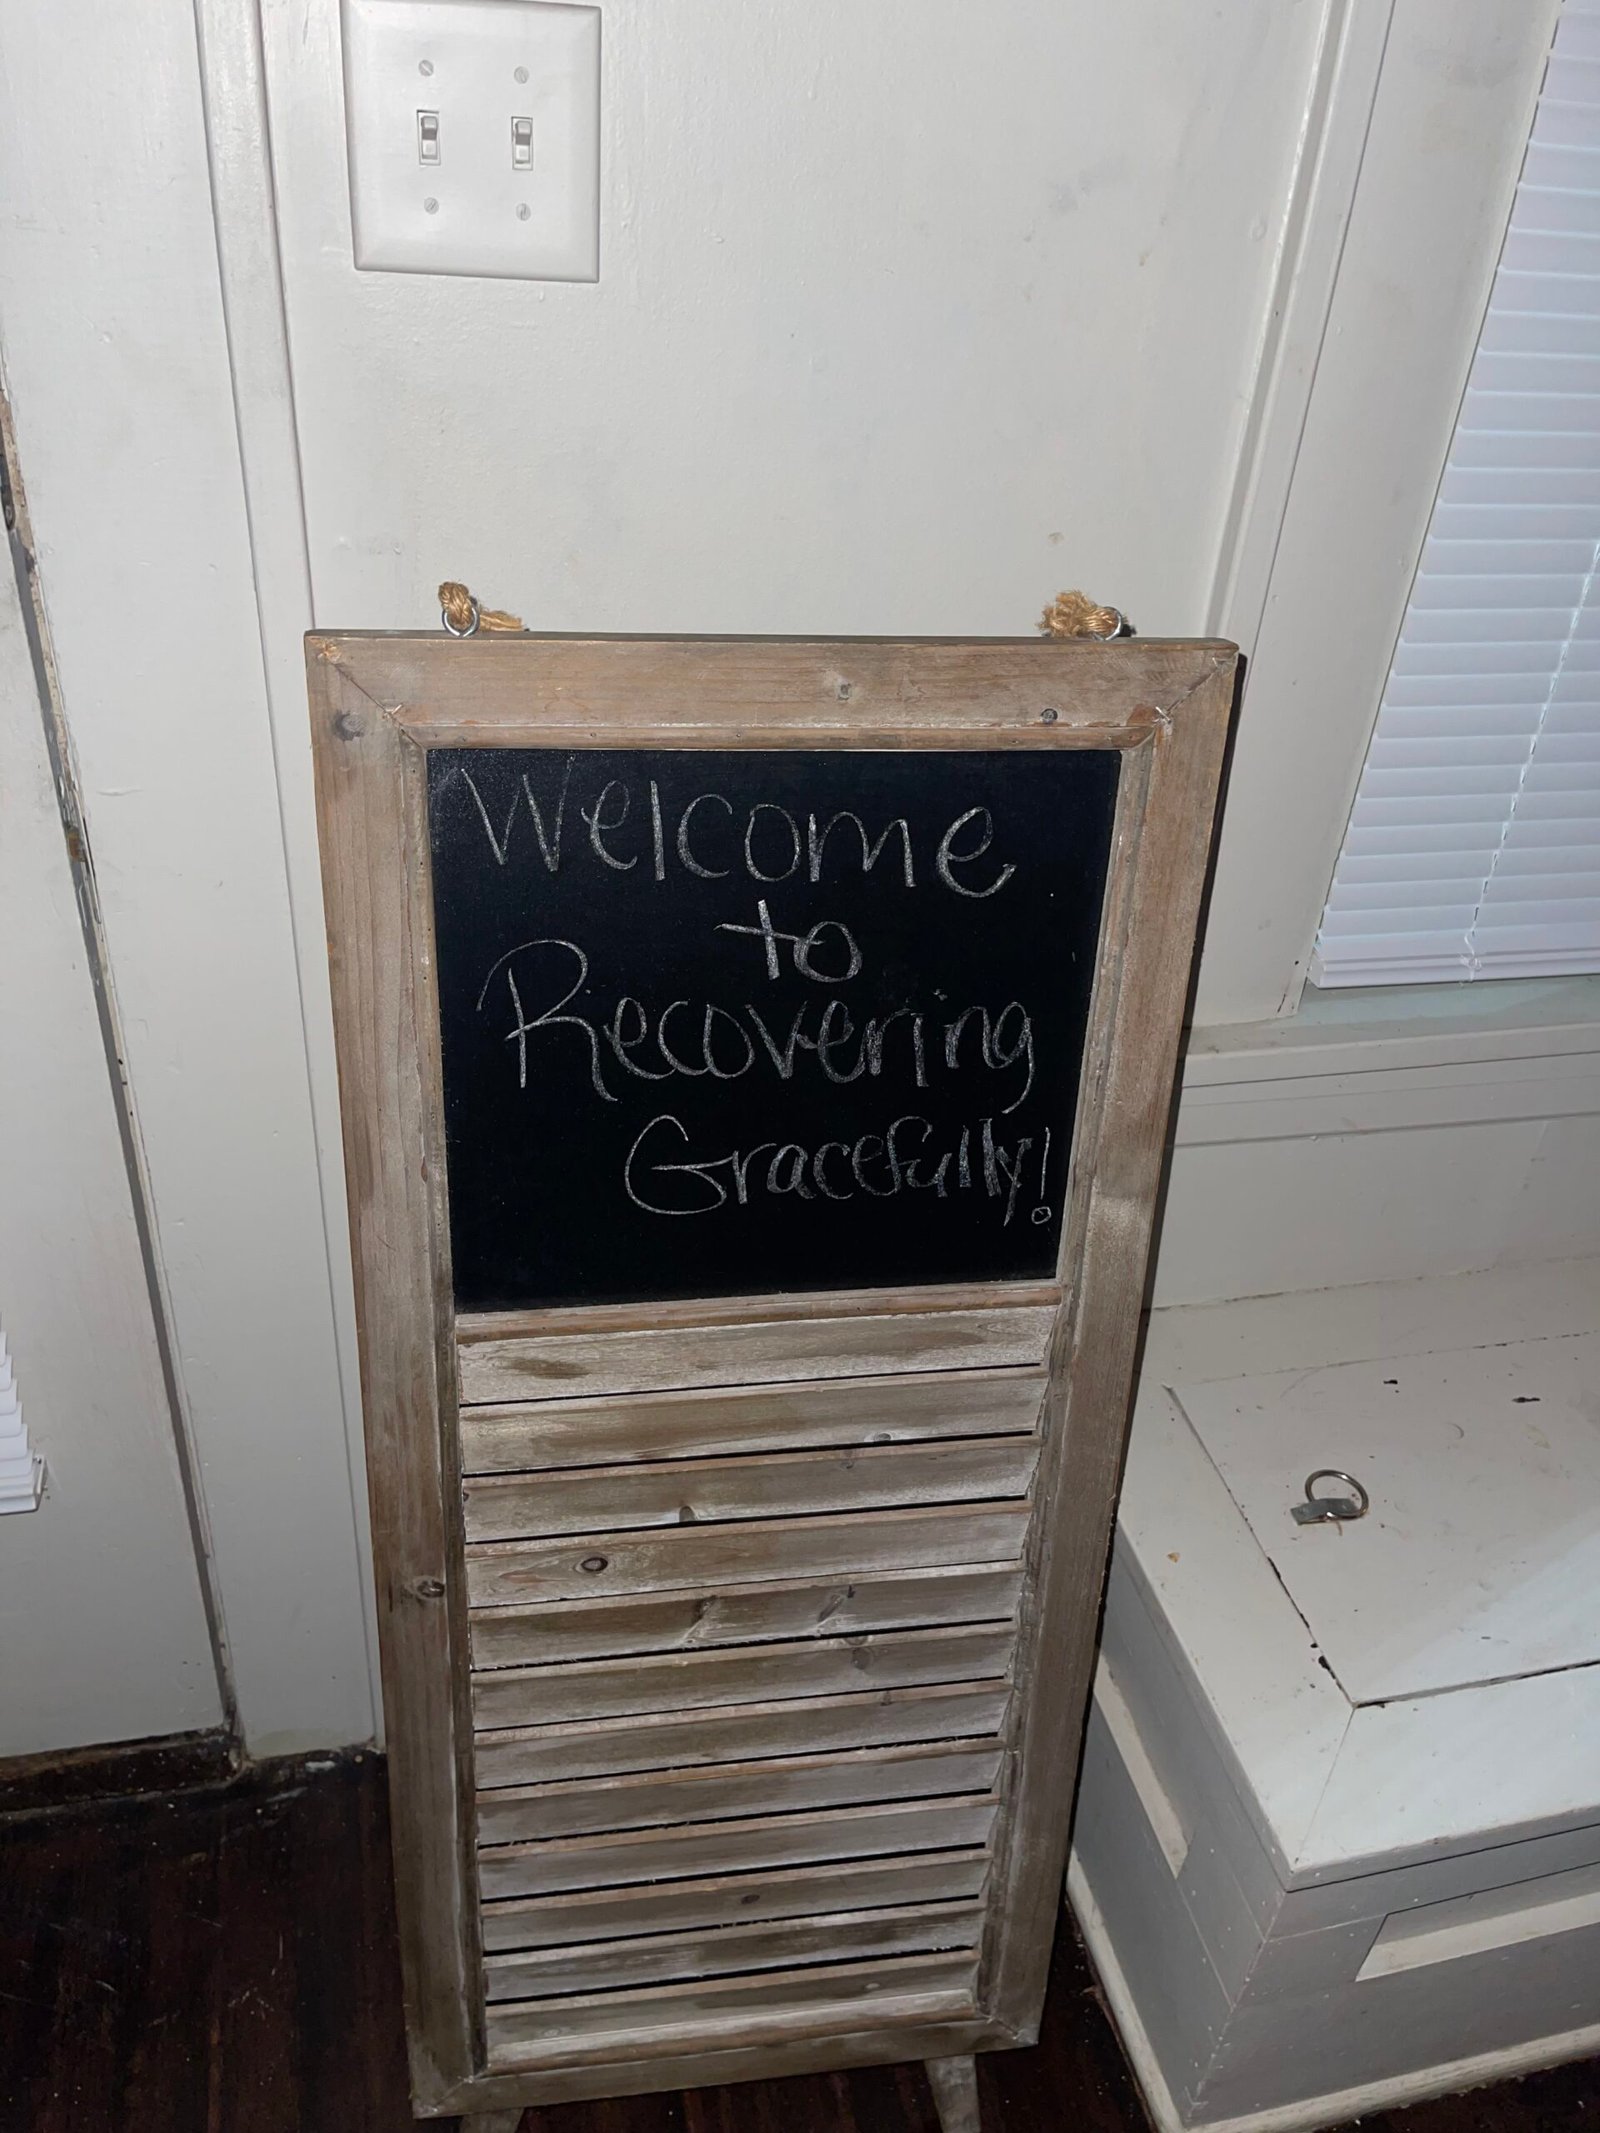 Welcome
to
Recovering
Gracefully!